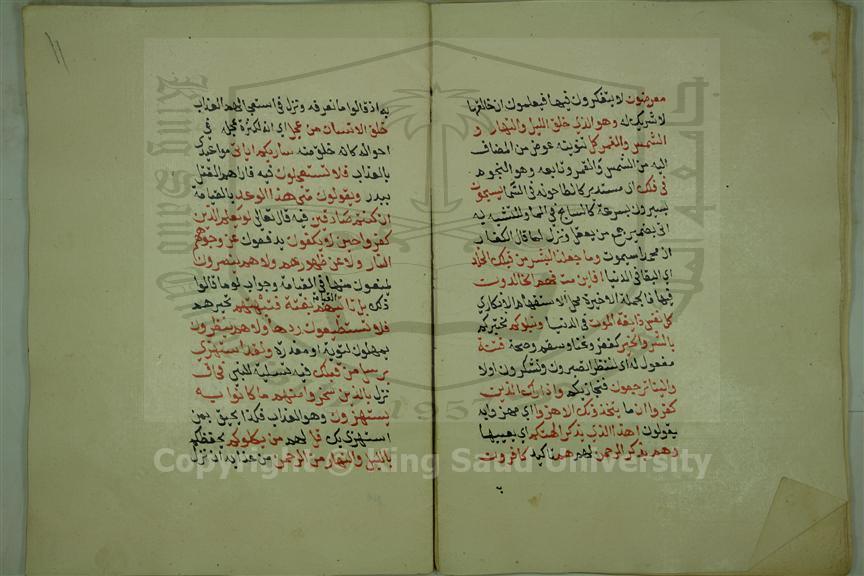 معرضون لا يتفكرون فيها فيعلمون ان خالقها
لا شريك له وهو الذي خلق الليل والنهار و
الشمس والقمر كل تنوينه عوض من المضاف
اليه من الشمس والقمر وتابعه وهو النجوم
في فلك اي مستدير كالطاحونة في السماء يسبحون
يسيرون بسرعة كالسابح في الماء وللتشبيه به
اتى بضمير جمع من يعقل ونزل لما قال الكفار
ان محمدا سيموت وما جعلنا لبشر من قبلك الخلد
اي البقا في الدنيا افاين مت فهم الخالدون
فيها فالجملة الاخيرة محل الاستفهام الانكاري
كل نفس ذايقة الموت في الدنيا ونبلوكم نختبركم
بالشر والخير كفقر وغنا وسقم وصحة فتنة
مفعول له اي لننظر اتصبرون وتشكرون اولا
والينا ترجعون فنجازيكم واذا راك الذين
كفروا ان ما يتخذونك الا هزوا اي مهزوا به
يقولون اهذا الذي يذكر الهتكم اي يعيبها
وهم بذكر الرحمن لهم هم تاكيد كافرون
به اذ قالوا ما نعرفه ونزل في استعجالهم العذاب
خلق الانسان من عجل اي انه لكثرة عجله في
احواله كانه خلق منه ساريكم اياتي مواعيدي
بالعذاب فلا تستعجلون فيه فاراهم القتل
ببدر ويقولون متى هذا الوعد بالقيامة
ان كنتم صادقين فيه قال تعالى لو يعلم الذين
كفروا حين لا يكفون يدفعون عن وجوههم
النار ولا عن ظهورهم ولا هم ينصرون
يمنعون منها في القيامة وجواب لو ما قالوا
ذلك بل تاتيهم القيامة بغتة فتبهتهم تحيرهم
فلا يستطيعون ردها ولا هم ينظرون
يمهلون لتوبة او معذرة ولقد استهزئ
برسل من قبلك فيه تسلية للنبي فحاق
نزل بالذين سخروا منهم ما كانوا به
يستهزون وهو العذاب فكذا يحيق بمن
استهزى بك قل لهم من يكلوكم يحفظكم
بالليل والنهار من الرحمن من عذابه ان نزل
Copyright © King Saud University
King Saud University
1957